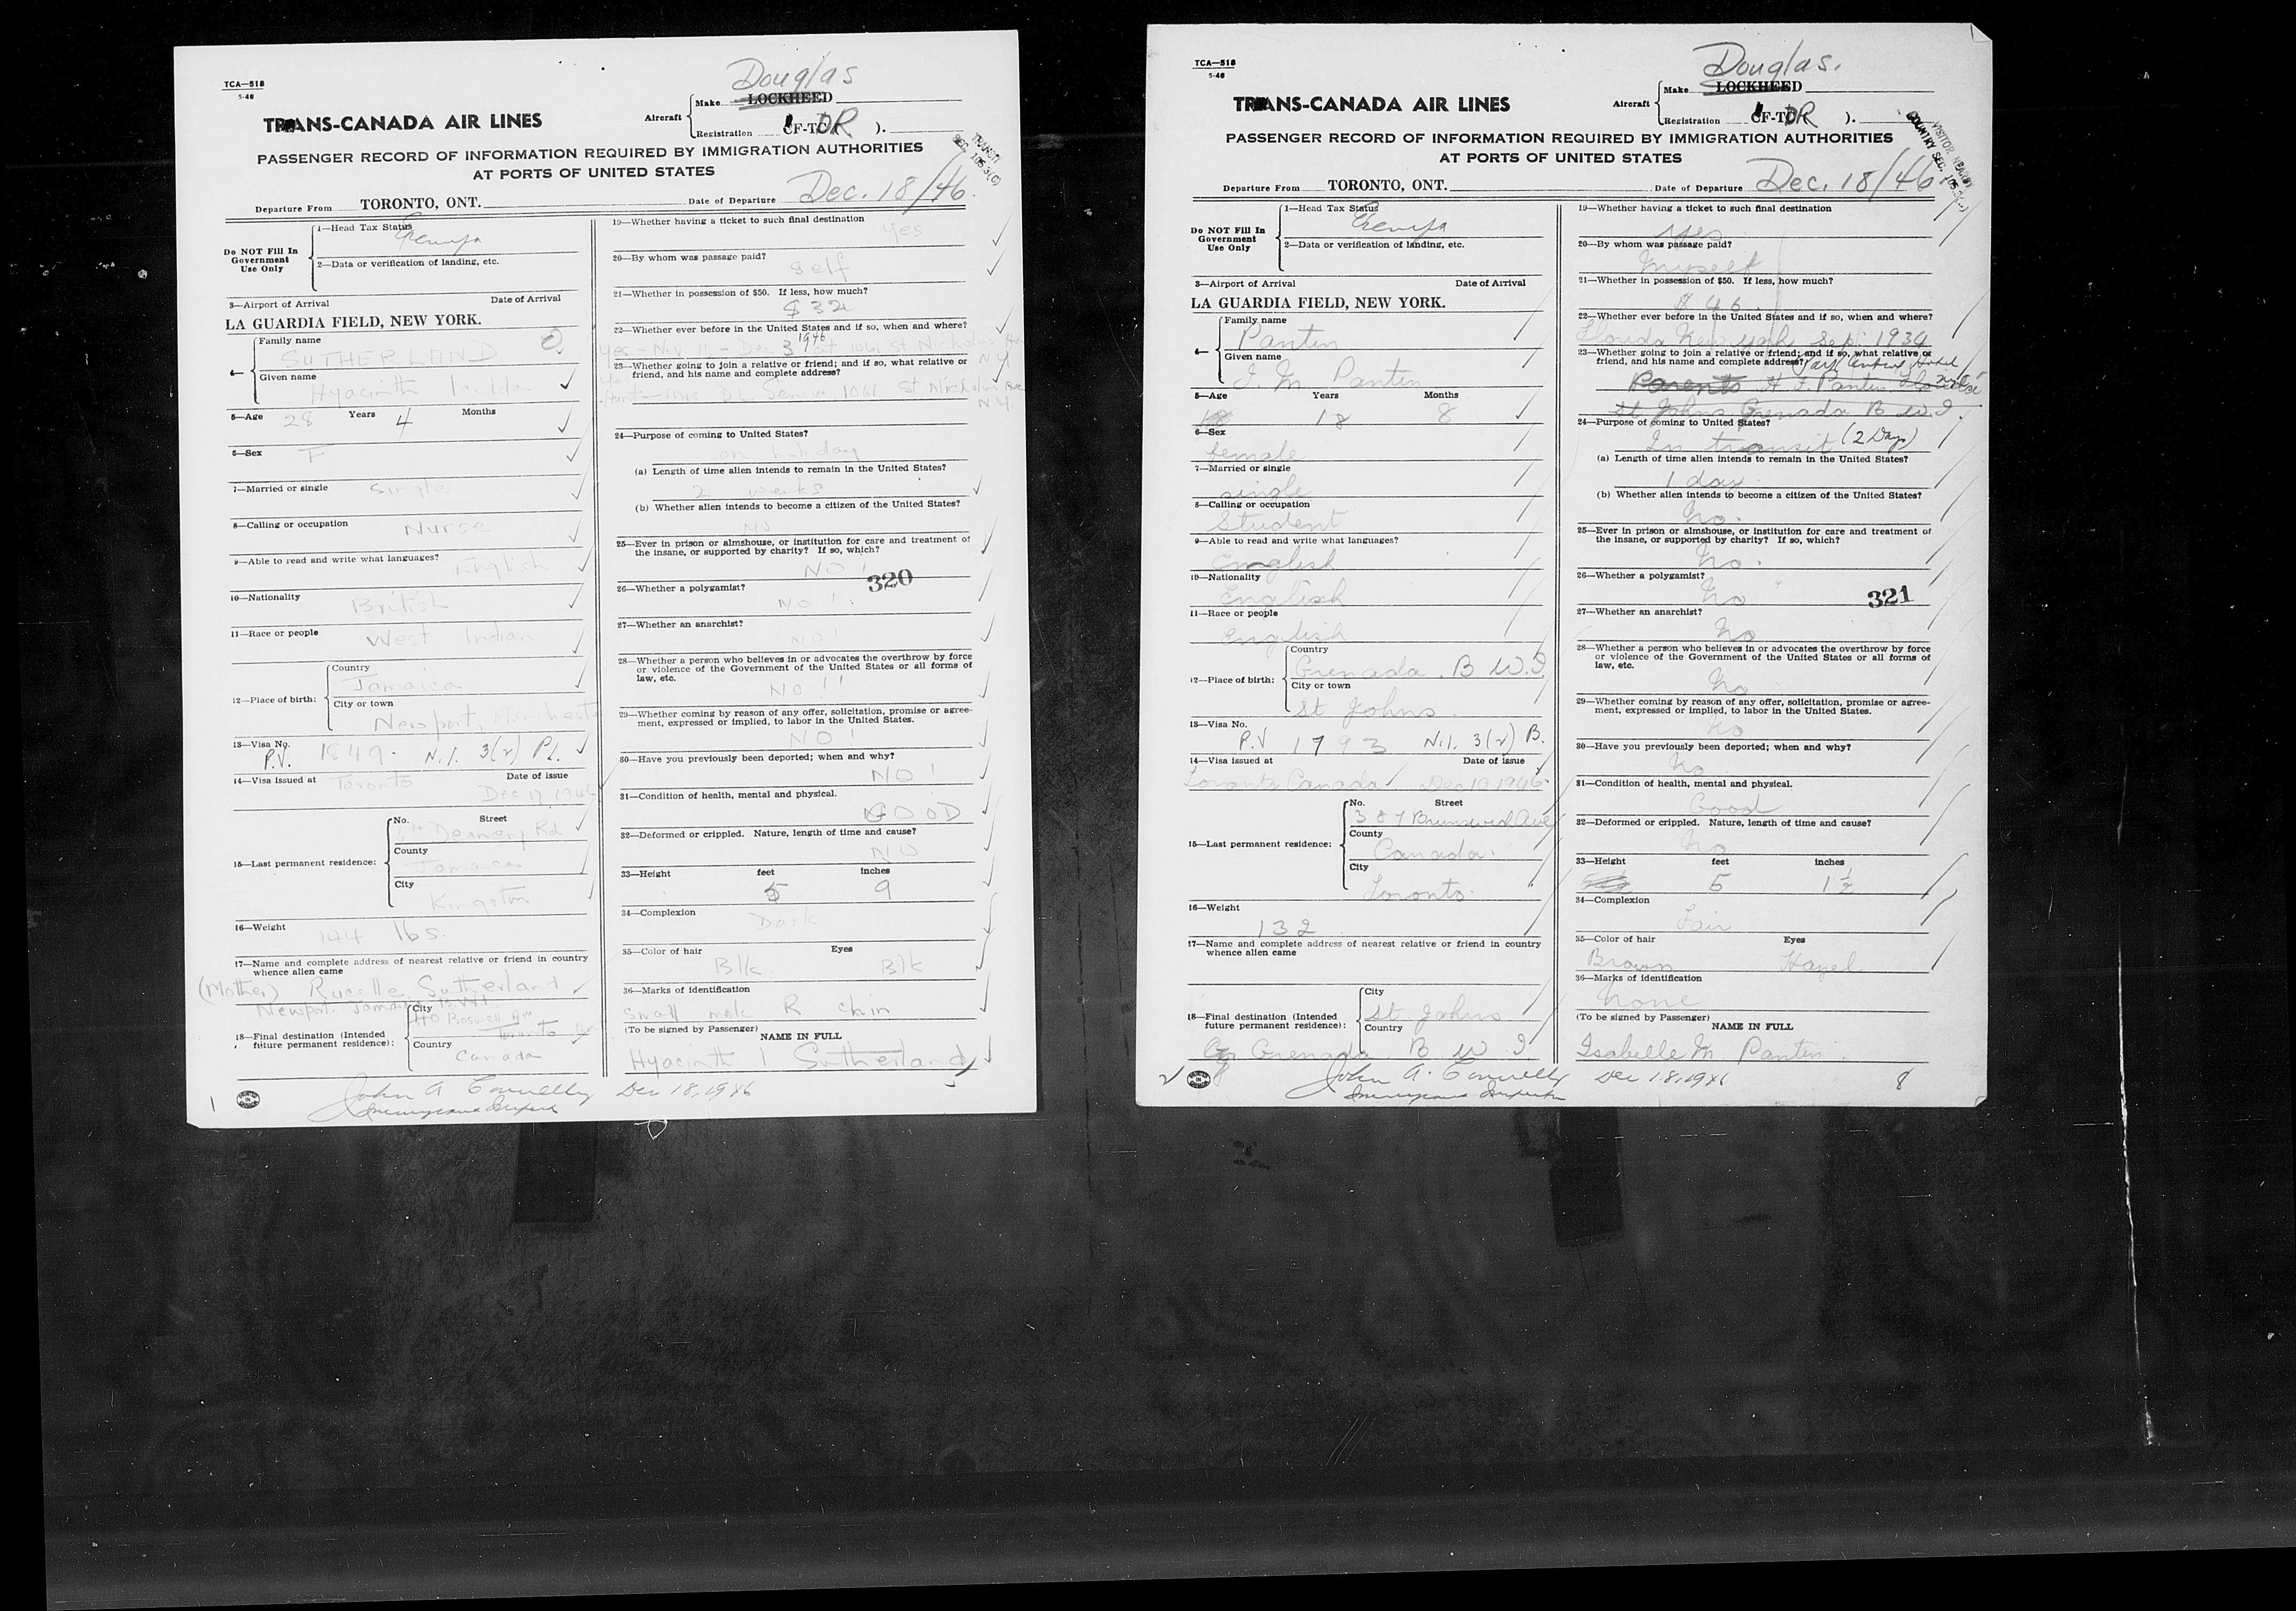 TCA—518
5-46
TRANS-CANADA AIR LINES
Aircraft
Douglas
Make LOCKHEED
Registration CF-T DR ).
TRANSIT
SEC. 105.3(C)
PASSENGER RECORD OF INFORMATION REQUIRED BY IMMIGRATION AUTHORITIES
AT PORTS OF UNITED STATES
Departure From TORONTO, ONT. Date of Departure Dec. 18/46.
Do NOT Fill In Government Use Only
1—Head Tax Status
2—Data or verification of landing, etc.
3—Airport of Arrival Date of Arrival
LA GUARDIA FIELD, NEW YORK.
4—
Family name
SUTHERLAND
Given name
Hyacinth
5—Age 28 Years 4 Months
6—Sex F
7—Married or single Single
8—Calling or occupation Nurse
9—Able to read and write what languages? English
10—Nationality British
11—Race or people West Indian
12—Place of birth:
Country
Jamaica
City or town
Newport, Manchester
13—Visa No.
P.V. 1849. N.I. 3(2) P.L.
14—Visa issued at Toronto Date of issue
Dec 17 1946
15—Last permanent residence:
No. Street
Rd
County
Jamaica
City
Kingston
16—Weight
144 lbs.
17—Name and complete address of nearest relative or friend in country
whence alien came
(Mother) Sutherland
Newport. Jamaica B.W.I
18—Final destination (Intended
future permanent residence):
City
Toronto
Country
Canada
19—Whether having a ticket to such final destination
yes
20—By whom was passage paid?
Self
21—Whether in possession of $50. If less, how much?
$ 32
22—Whether ever before in the United States and if so, when and where?
Yes - Nov 11 - Dec 3 1946 at 1061 St Nicholas Ave
N Y
23—Whether going to join a relative or friend; and if so, what relative or
friend, and his name and complete address?
Aunt 1061 St Nicholas Ave
N Y.
24—Purpose of coming to United States?
on holiday
(a) Length of time alien intends to remain in the United States?
2 weeks
(b) Whether alien intends to become a citizen of the United States?
NO
25—Ever in prison or almshouse, or institution for care and treatment of
the insane, or supported by charity? If so, which?
NO!
320
26—Whether a polygamist?
NO!!
27—Whether an anarchist?
NO!
28—Whether a person who believes in or advocates the overthrow by force
or violence of the Government of the United States or all forms of
law, etc.
NO!!
29—Whether coming by reason of any offer, solicitation, promise or agree-
ment, expressed or implied, to labor in the United States.
NO!
30—Have you previously been deported; when and why?
NO!
31—Condition of health, mental and physical.
GOOD
32—Deformed or crippled. Nature, length of time and cause?
NO
33—Height feet inches
5 9
34—Complexion
Dark
35—Color of hair Eyes
Blk. Blk
36—Marks of identification
Small mole R chin
(To be signed by Passenger)
NAME IN FULL
Hyacinth I Sutherland
1
PRINTED IN CANADA
John A. Connelly Dec 18, 1946
Immigrant Inspector
TCA—518
5-46
TRANS-CANADA AIR LINES
Aircraft
Douglas.
Make LOCKHEED
Registration CF-T DR ).
PASSENGER RECORD OF INFORMATION REQUIRED BY IMMIGRATION AUTHORITIES
AT PORTS OF UNITED STATES
Departure From TORONTO, ONT. Date of Departure Dec. 18/46.
Do NOT Fill In Government Use Only
1—Head Tax Status
2—Data or verification of landing, etc.
3—Airport of Arrival Date of Arrival
LA GUARDIA FIELD, NEW YORK.
4—
Family name
Pantin
Given name
I. M. Pantin
5—Age Years Months
18 18 8
6—Sex
female
7—Married or single
single
8—Calling or occupation
Student
9—Able to read and write what languages?
English
10—Nationality
English
11—Race or people
English
12—Place of birth:
Country
Grenada. B W.I
City or town
St Johns.
13—Visa No.
P.V 1793 N.I. 3(2) B.
14—Visa issued at Date of issue
Toronto Canada Dec 10 1946.
15—Last permanent residence:
No. Street
387 Brunswick Ave
County
Canada.
City
Toronto.
16—Weight
132
17—Name and complete address of nearest relative or friend in country
whence alien came
18—Final destination (Intended
future permanent residence):
City
St Johns
Country
Grenada B W I
19—Whether having a ticket to such final destination
yes
20—By whom was passage paid?
Myself
21—Whether in possession of $50. If less, how much?
$ 46.
22—Whether ever before in the United States and if so, when and where?
Florida New York Sep. 1934
23—Whether going to join a relative or friend; and if so, what relative or
friend, and his name and complete address? Park Central Hotel
Parents H. F. Pantin
St Johns Grenada B W.I.
24—Purpose of coming to United States?
In transit (2 Days)
(a) Length of time alien intends to remain in the United States?
1 day.
(b) Whether alien intends to become a citizen of the United States?
No.
25—Ever in prison or almshouse, or institution for care and treatment of
the insane, or supported by charity? If so, which?
No.
26—Whether a polygamist?
No
321
27—Whether an anarchist?
No
28—Whether a person who believes in or advocates the overthrow by force
or violence of the Government of the United States or all forms of
law, etc.
No
29—Whether coming by reason of any offer, solicitation, promise or agree-
ment, expressed or implied, to labor in the United States.
No
30—Have you previously been deported; when and why?
No.
31—Condition of health, mental and physical.
Good
32—Deformed or crippled. Nature, length of time and cause?
No
33—Height feet inches
5 1½
34—Complexion
Fair
35—Color of hair Eyes
Brown Hazel
36—Marks of identification
None
(To be signed by Passenger)
NAME IN FULL
Isabelle M. Pantin.
2
PRINTED IN CANADA
John A. Connelly Dec 18, 1946
Immigrant Inspector
8